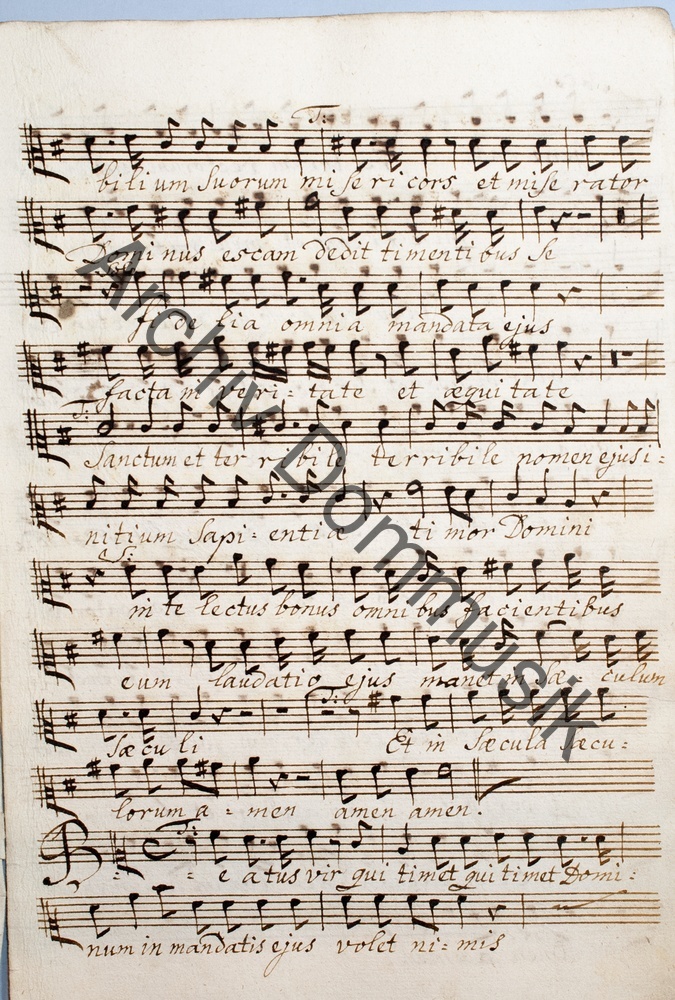 T:
bilium Suorum mi se ri cors et mise rator
Domi nus escam dedit timenti bus se
fi de lia omnia mandata ejus
facta in veri: tate et æquitate
T:
Sanctum et ter ribile terribile nomen ejus i:
nitium Sapi: entiæ ti mor Domini
S:
in te lectus bonus omni bus facientibus
eum laudatio ejus manet in Sæ: culum
T:
Sæculi Et in Sæcula Sæcu:
lorum a: men amen amen.
T:
B: : e atus vir qui timet qui timet Domi:
num in mandatis ejus volet ni: mis
Archiv Dommusik